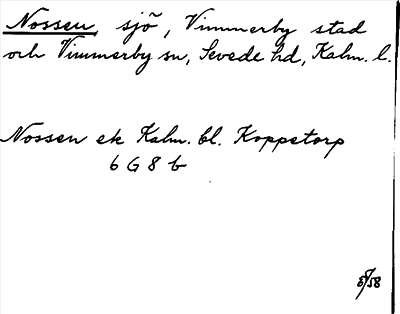 Nossen, sjö, Vimmerby stad
och Vimmerby sn, Sevede hd, Kalm. l.
Nossen ek Kalm. bl. Koppetorp
6 G 8 b